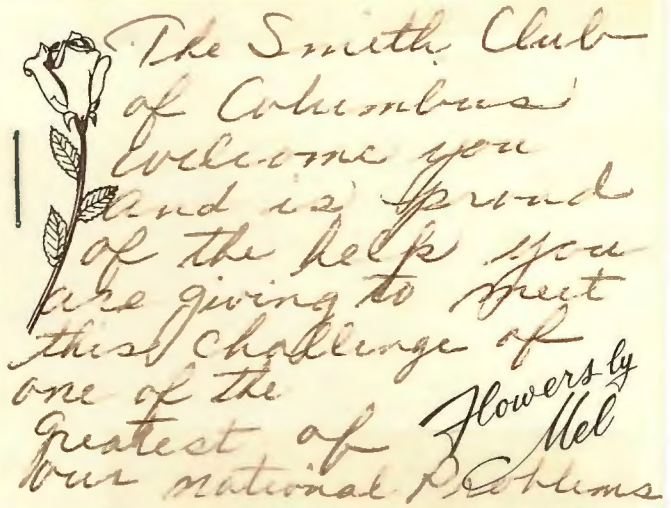 The Smith Club
of Columbus
welcome you
and is proud
of the help you
are giving to meet
this challenge of
one of the
greatest of
our national Problems
Flowers by
Mel